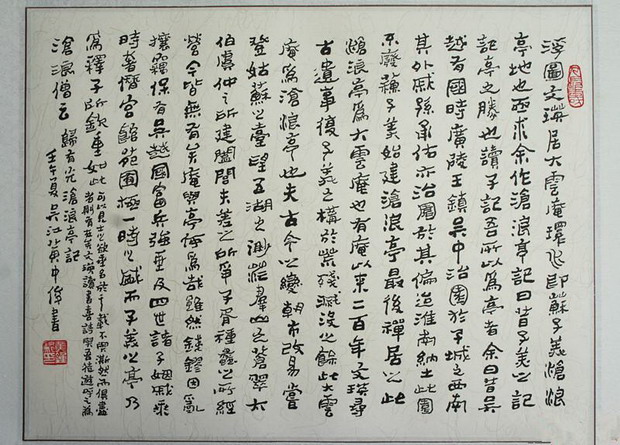 浮圖文瑛居大雲庵環水即蘇子美滄浪
亭地也亟求余作滄浪亭記曰昔子美之記
記亭之勝也讀子記吾所以為亭者余曰昔吳
越有國時廣陵王鎮吳中治園於子城之西南
其外戚孫承佑亦治園於其偏迨淮南納土此園
不廢蘇子美始建滄浪亭最後禪居之此
滄浪亭為大雲庵也有庵以來二百年文瑛尋
古遺事復子美之構於荒殘滅沒之餘此大雲
庵為滄浪亭也夫古今之變朝市改易嘗
登姑蘇之臺望五湖之渺茫羣山之蒼翠太
伯虞仲之所建闔閭夫差之所爭子胥種蠡之所經
營今皆無有矣庵與亭何為哉雖然錢鏐因亂
攘竊保有吳越國富兵強垂及四世諸子姻戚乘
時奢僭宮館苑囿極一時之盛而子美之亭乃
為釋子所欽重如此可以見士之欲垂名於千載不與澌然而俱盡
者則有在矣文瑛讀書喜詩與吾徒遊呼之為
滄浪僧云 歸有光滄浪亭記
壬午夏吳江黃中俊書